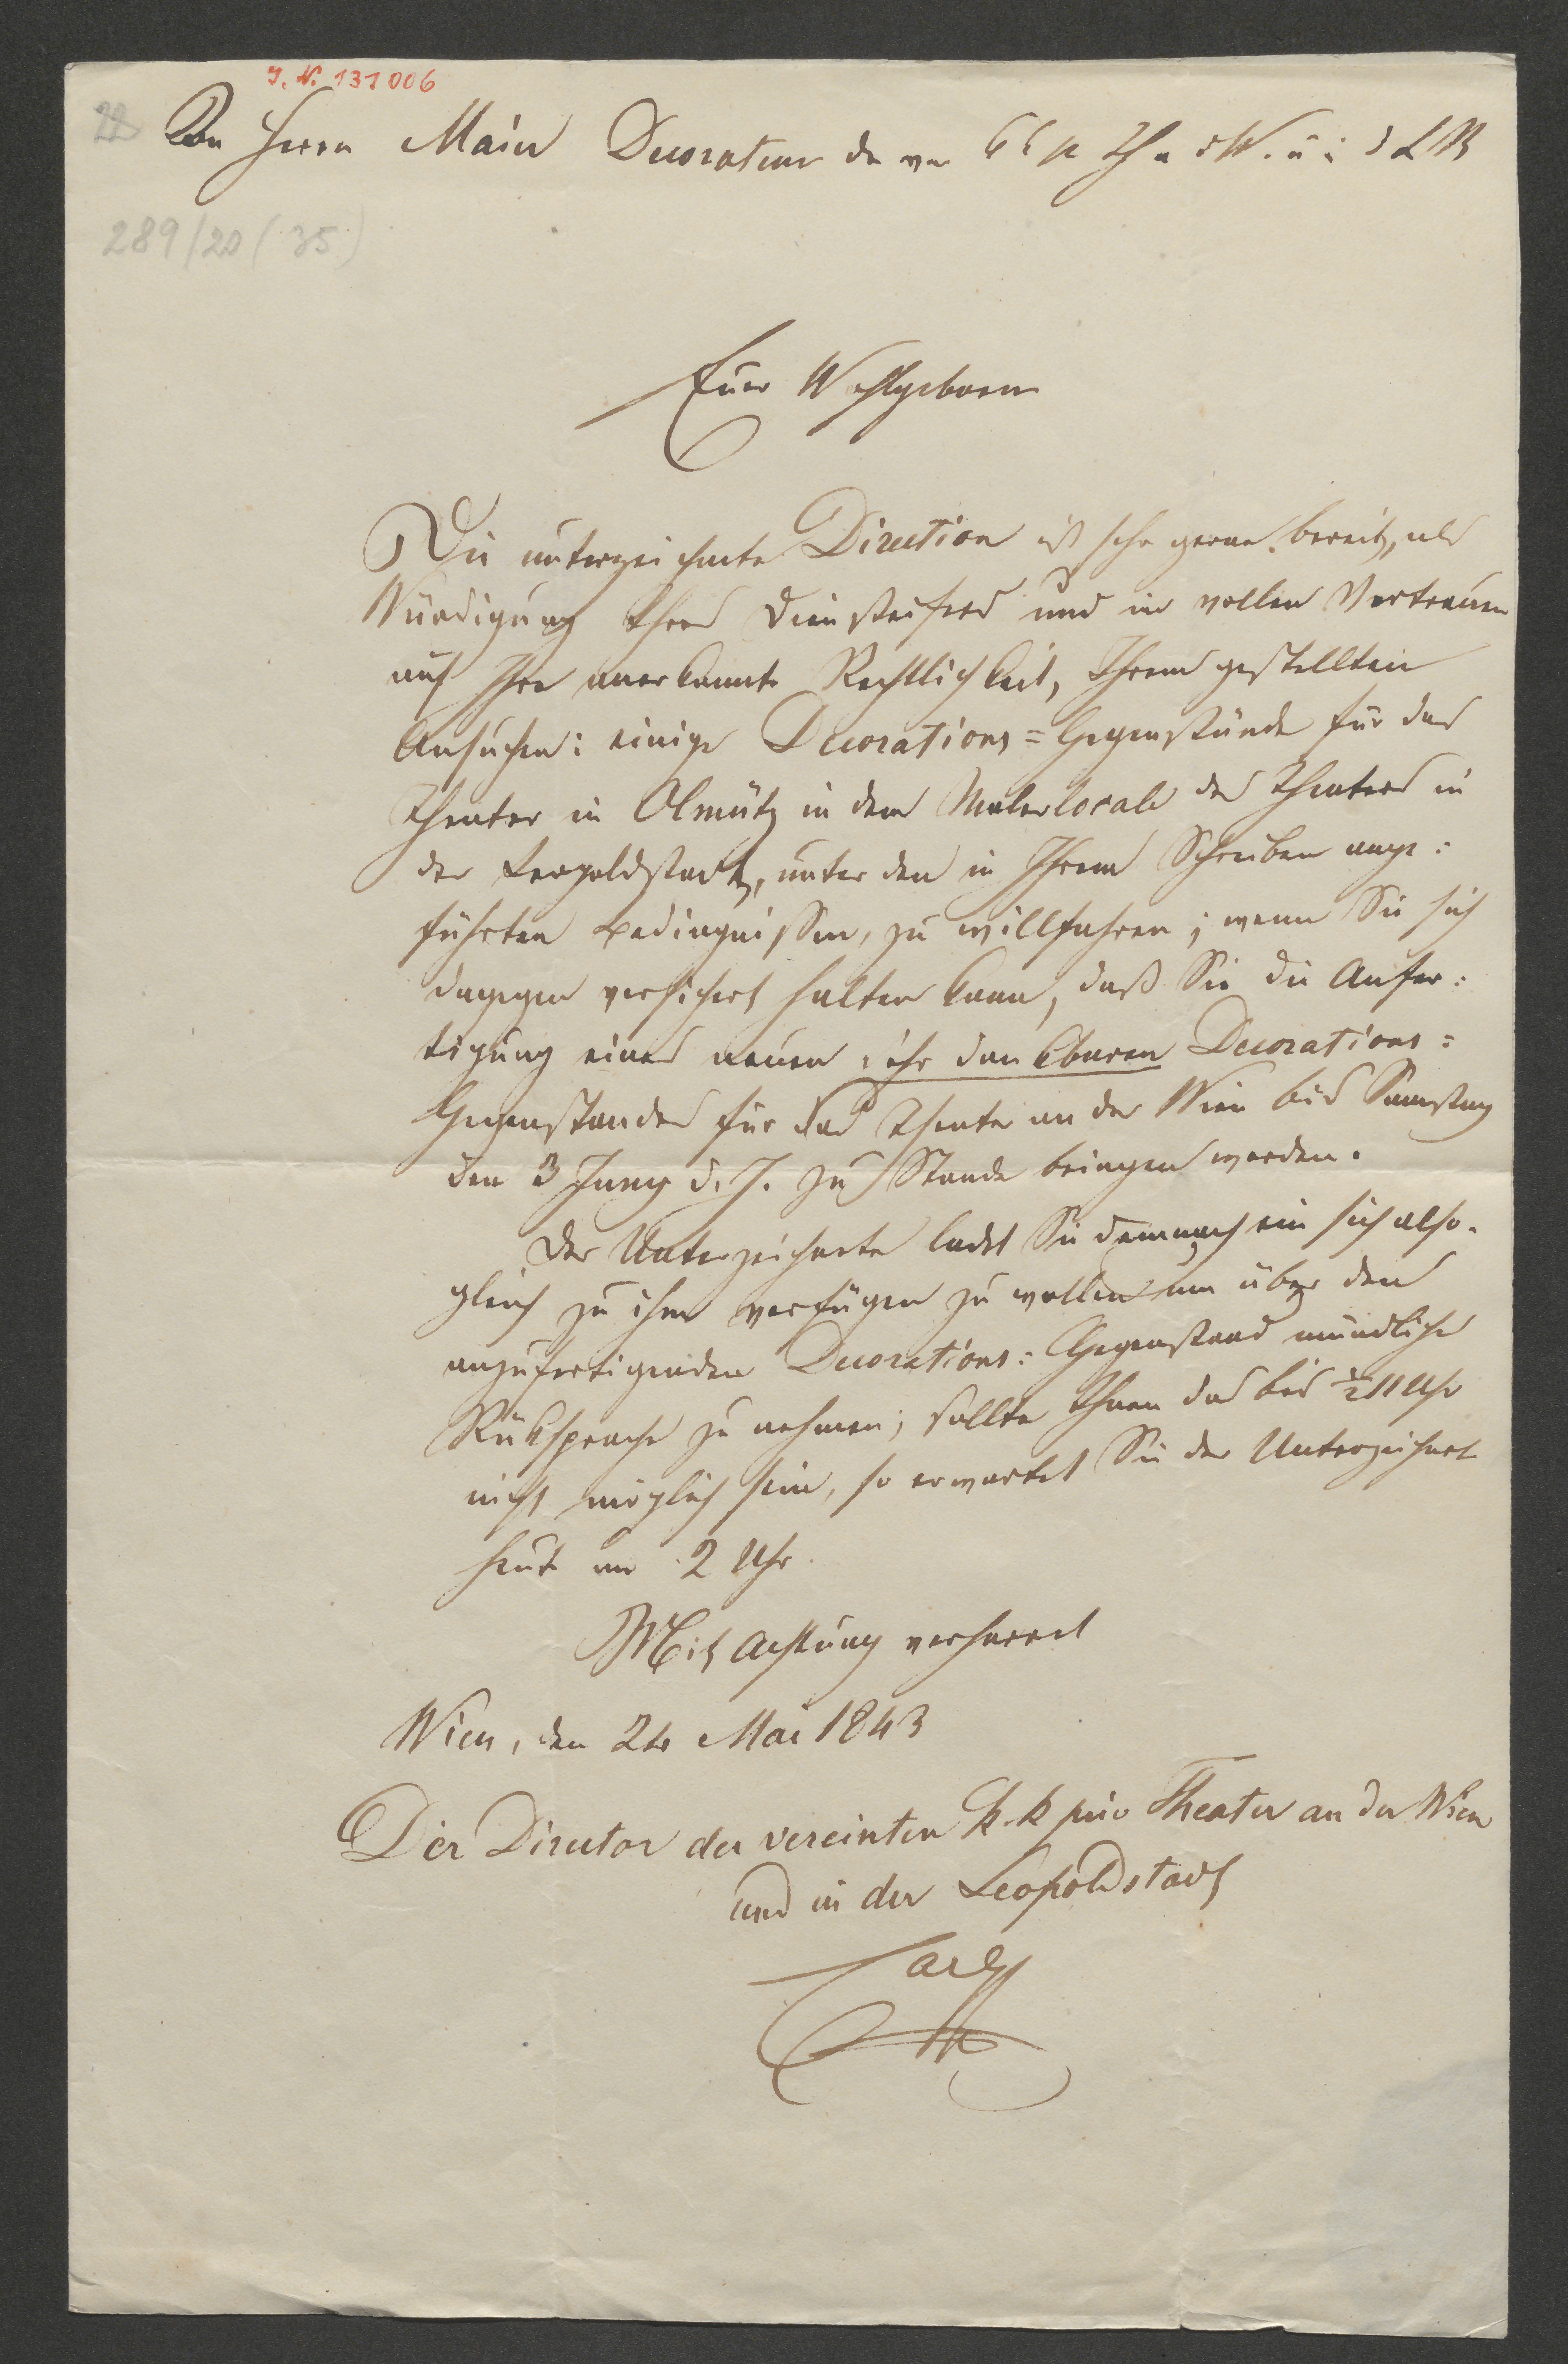 I. N. 131006
22
An Herrn Maier Decorateur der ver k k p Th a d W. u i d L St
289/20 (35)
Euer Wohlgeboren
Die unterzeichnete Direction ist sehr gerne bereit, als
Würdigung Ihres Diensteifers und im vollen Vertrauen
auf Ihre anerkannte Rechtlichkeit, Ihrem gestellten
Ansuchen: einige Decorations=Gegenstände für das
Theater in Olmütz in dem Malerlocale des Theaters in
der Leopoldstadt, unter den in Ihrem Schreiben ange:
führten Bedingnissen, zu willfahren; wenn Sie sich
dagegen versichert halten kann, daß Sie die Anfer:
tigung eines neuen sehr dankbaren Decorations:
Gegenstandes für das Theater an der Wien bis Samstag
den 3 Juny d. J. zu Stande bringen werden.
Der Unterzeichnete ladet Sie demnach ein sich also:
gleich zu ihm verfügen zu wollen um über den
anzufertigenden Decorations: Gegenstand mündliche
Rüksprache zu nehmen; sollte Ihnen das bis ½ 11 Uhr
nicht möglich sein, so erwartet Sie der Unterzeichnete
heute um 2 Uhr.
Mit Achtung verharret
Wien, den 24 Mai 1843
Der Director der vereinten k. k priv Theater an der Wien
und in der Leopoldstadt
Carl